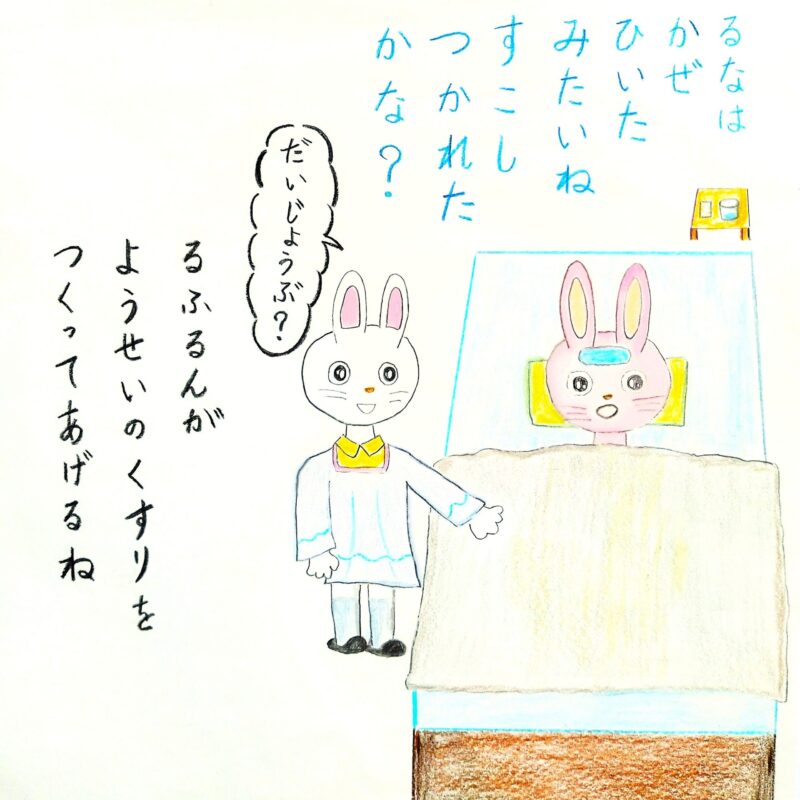 るなは
かぜ
ひいた
みたいね
すこし
つかれた
かな?
だいじょうぶ?
るふるんが
ようせいのくすりを
つくってあげるね